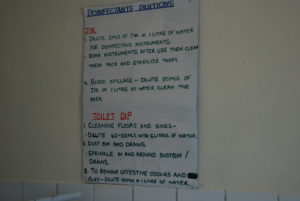 DISINFECTANTS DILUTIONS
JIK
1. DILUTE 5MLS OF JIK IN 1 LITRE OF WATER
FOR DISINFECTING INSTRUMENTS.
- SOAK INSTRUMENTS AFTER USE THEN CLEAN
THEM PACK AND STERILIZE THEM.
2. BLOOD SPILLAGE - DILUTE 50MLS OF
JIK IN 1 LITRE OF WATER CLEAN THE
AREA
TOILET DIP
1. CLEANING FLOORS AND SINKS -
- DILUTE 60-100MLS INTO 5 LITRES OF WATER
2. DUST BIN AND DRAINS
- SPRINKLE IN AND AROUND DUSTBIN /
DRAINS.
3. TO REMOVE OFFESTIVE ODOURS AND
FLIES - DILUTE IN 1 LITRE OF WATER